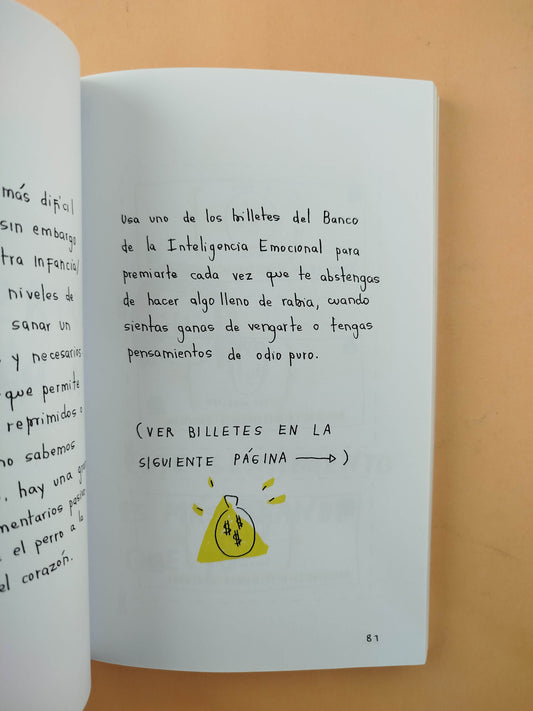 más difícil
sin embargo
tra infancia/
niveles de
sanar un
y necesarios
que permite
reprimidos o
no sabemos
, hay una
mentarios
el perro a la
el corazón.
Usa uno de los billetes del Banco
de la Inteligencia Emocional para
premiarte cada vez que te abstengas
de hacer algo lleno de rabia, cuando
sientas ganas de vengarte o tengas
pensamientos de odio puro.
(VER BILLETES EN LA
SIGUIENTE PÁGINA →)
$ $ $
81